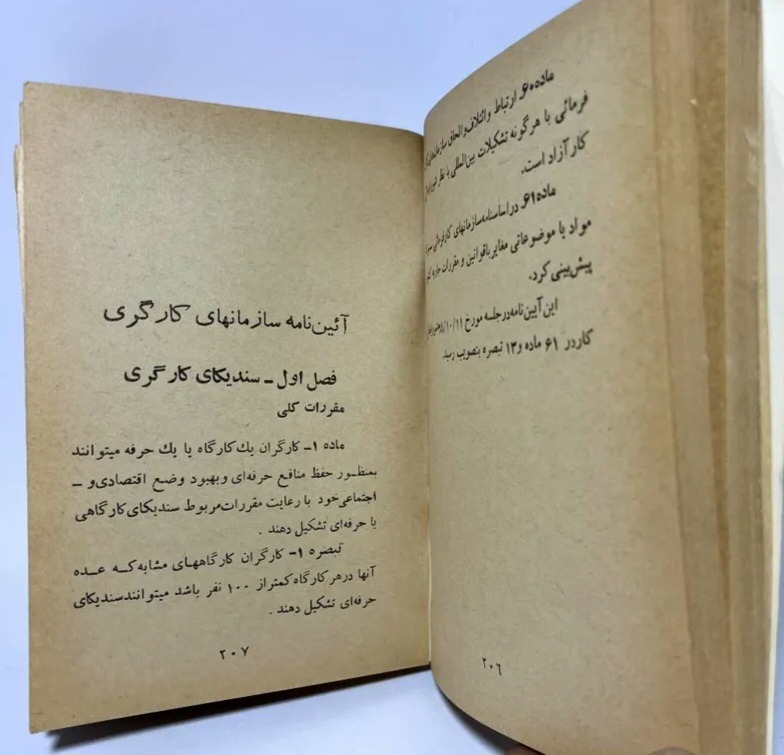 ماده ۶۰ـ ارتباط و ائتلاف و الحاق سازمانهای
فرمائی با هرگونه تشکیلات بین‌المللی با نظر
کار آزاد است.
ماده ۶۱ـ در اساسنامه سازمانهای کارفرمائی
مواد یا موضوعاتی مغایر با قوانین و مقررات
پیش‌بینی کرد.
این آیین‌نامه در جلسه مورخ
کار در ۶۱ ماده و ۱۳ تبصره بتصویب رسید.
۲۰۶
آئین‌نامه سازمانهای کارگری
فصل اول ـ سندیکای کارگری
مقررات کلی
ماده ۱ـ کارگران یك کارگاه یا یك حرفه میتوانند
بمنظور حفظ منافع حرفه‌ای و بهبود وضع اقتصادی و ـ
اجتماعی خود با رعایت مقررات مربوط سندیکای کارگاهی
یا حرفه‌ای تشکیل دهند .
تبصره ۱ـ کارگران کارگاههای مشابه که عده
آنها در هر کارگاه کمتر از ۱۰۰ نفر باشد میتوانند سندیکای
حرفه‌ای تشکیل دهند .
۲۰۷